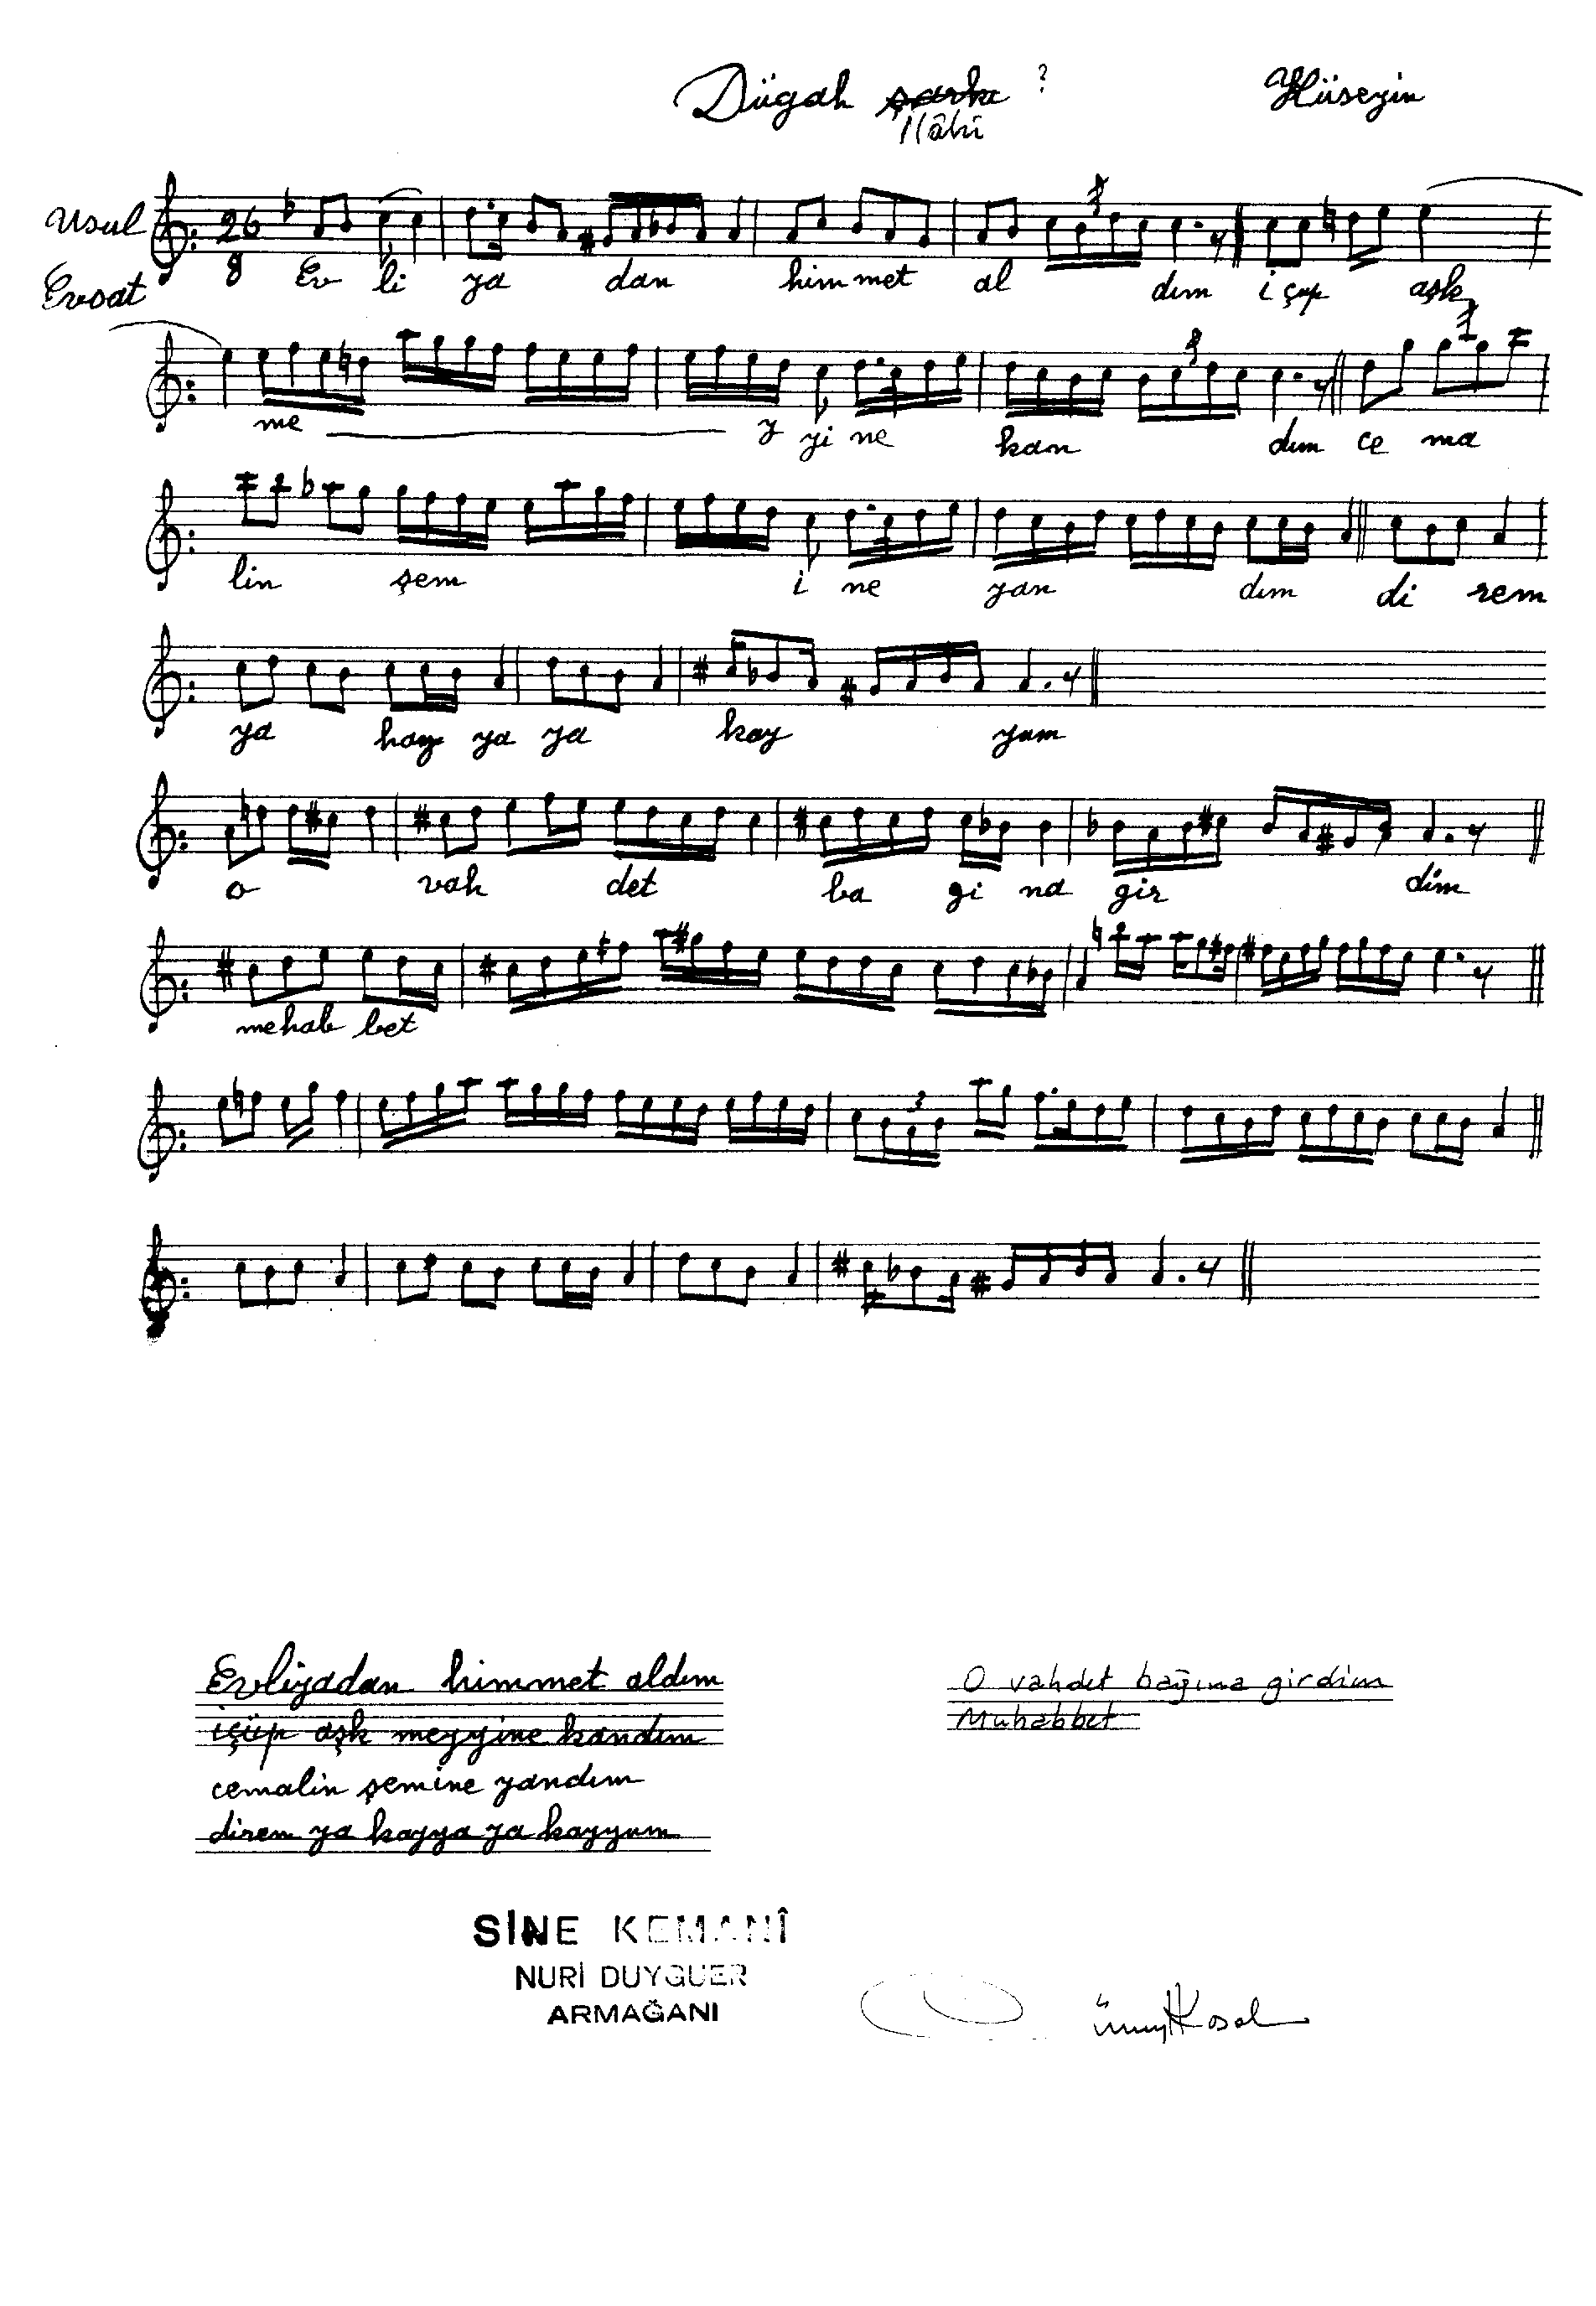 Dügah şarkı ? Hüseyin
İlâhî
Usul 26 3
Evsat 8
Ev li ya dan him met al dım i çup aşk
me y yi ne kan dım ce ma
lin şem i ne yan dım di rem
ya hay ya ya kay yum
o vah det ba gi na gir dim
mehab bet
3
Evliyadan himmet aldım
içüp aşk meyyine kandım
cemalin şemine yandım
direm ya kayya ya kayyum
O vahdet bağına girdim
Muhabbet
SİNE KEMANÎ
NURİ DUYGUER
ARMAĞANI